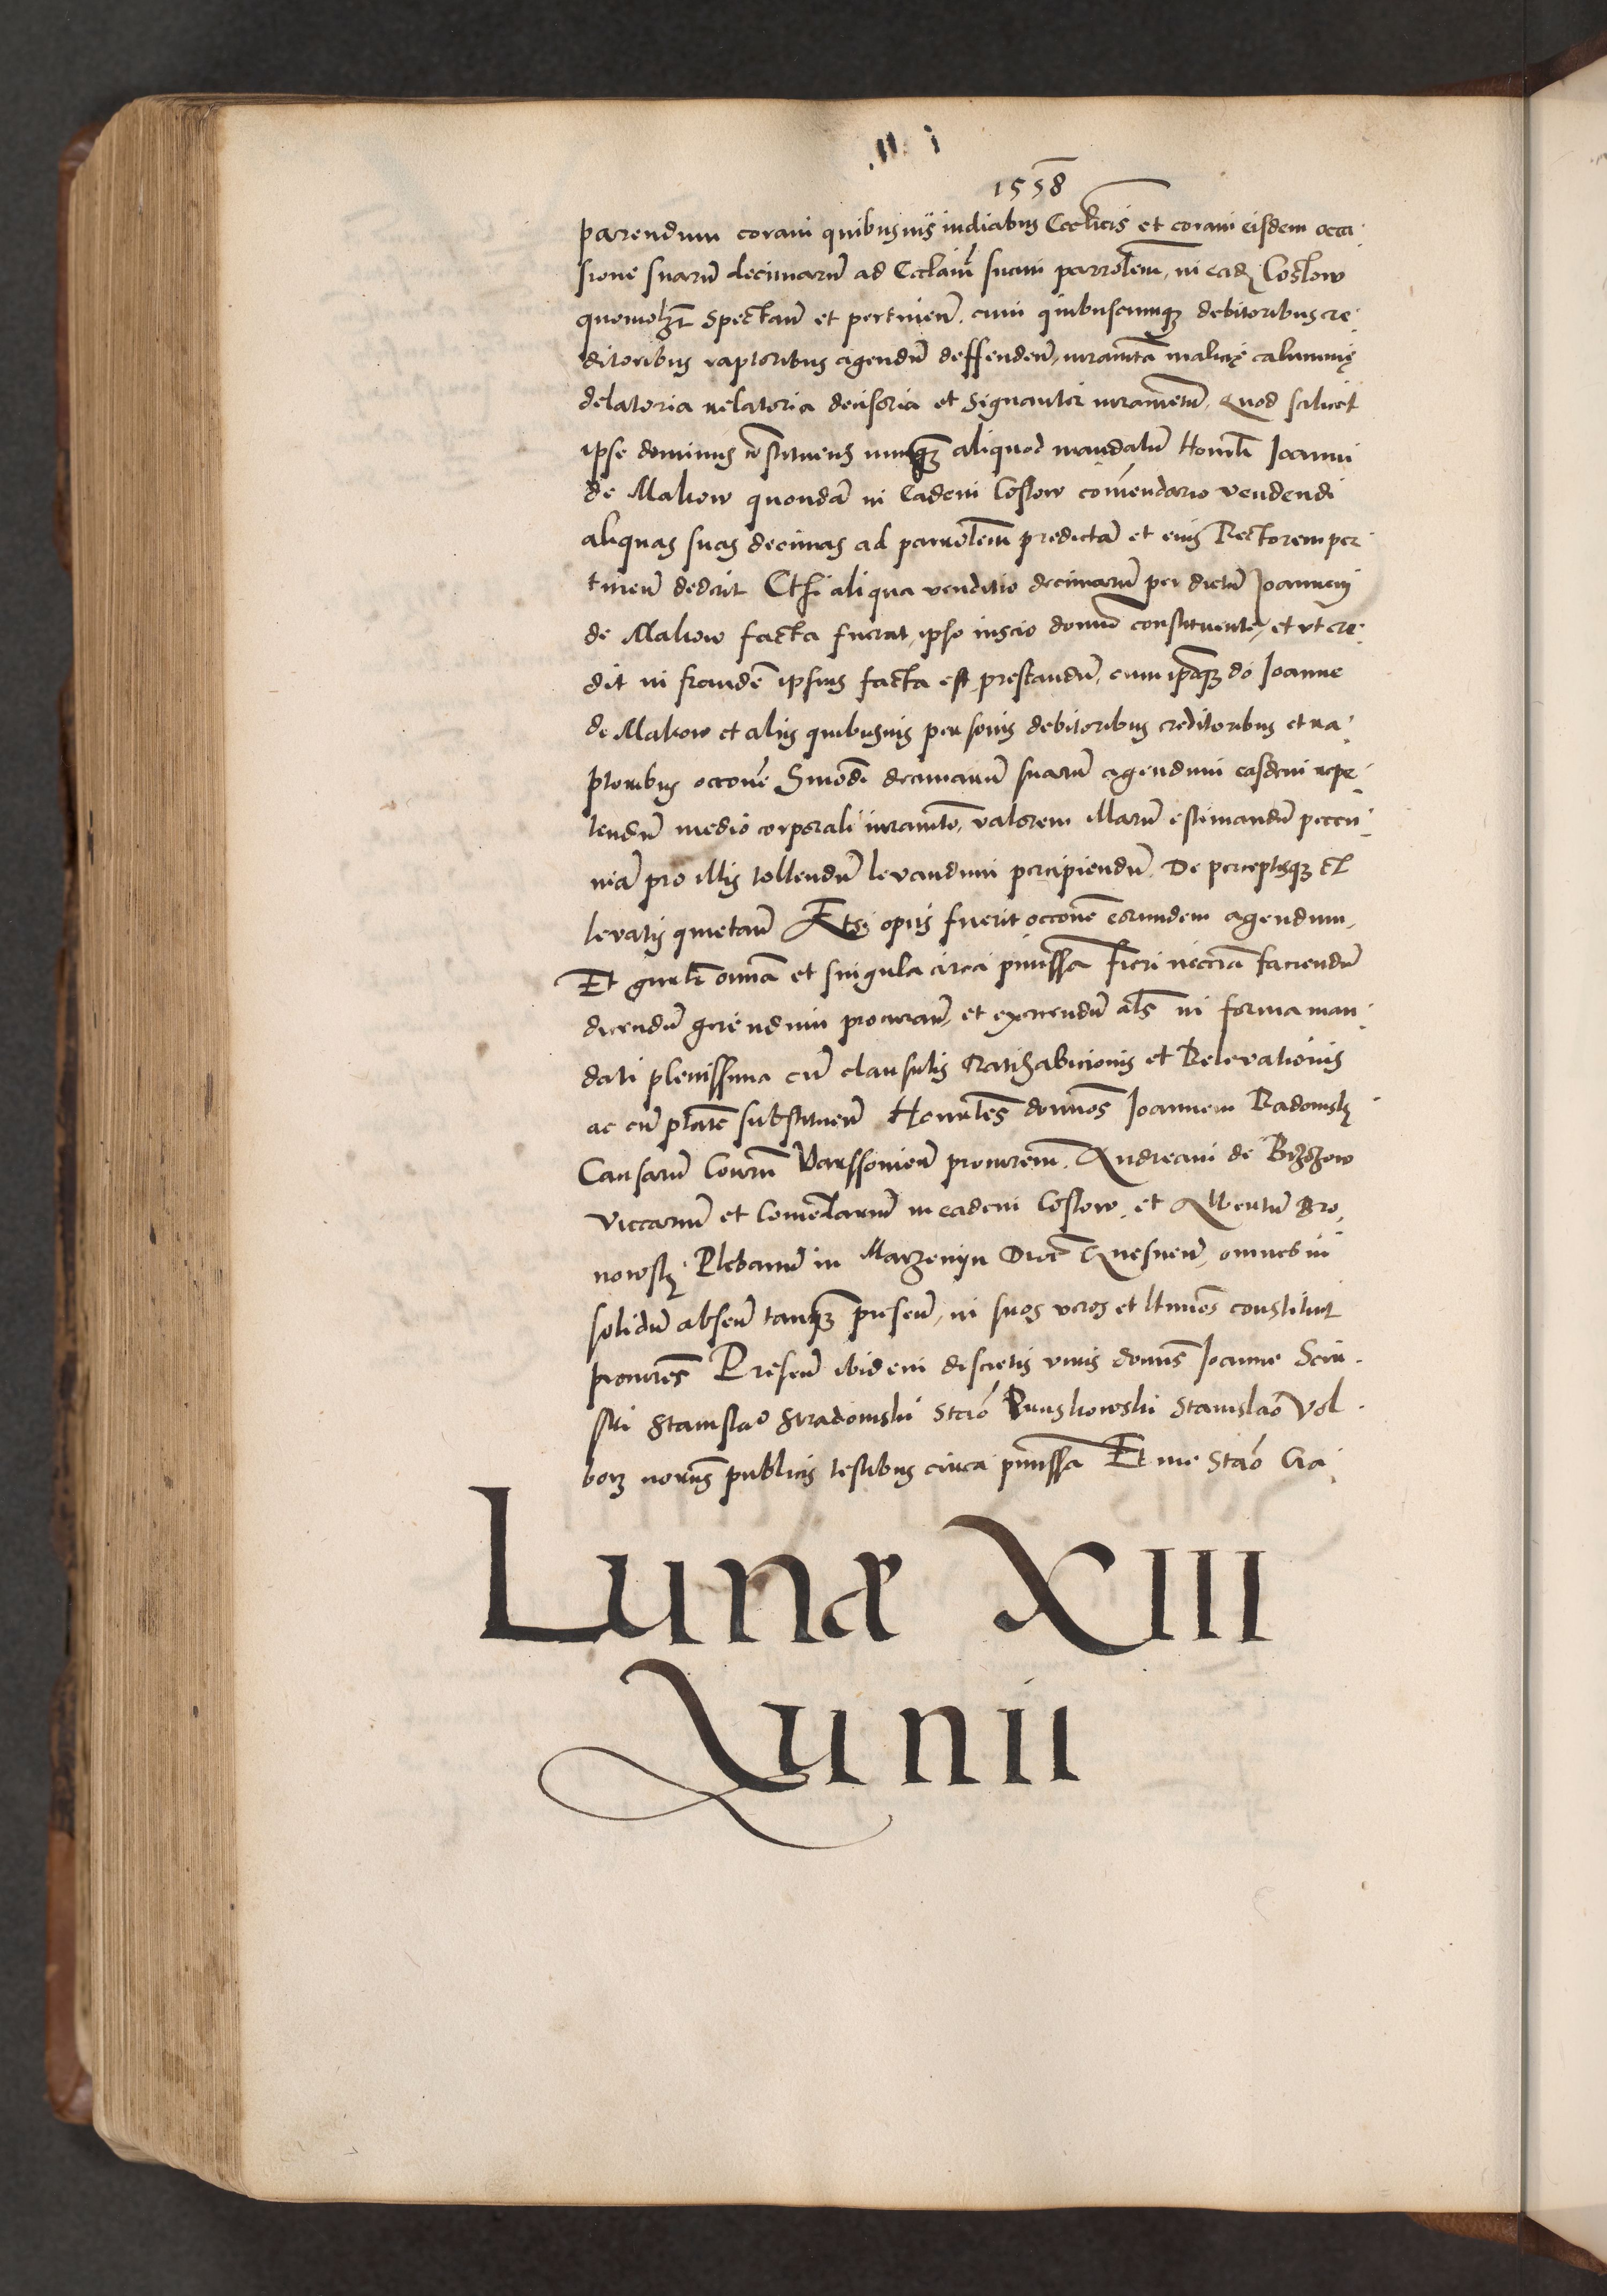 1558
parendum coram quibusvis iudicibus Ecclicis et coram eisdem occa
sione suarū decimarū ad Ecclaiū suam parrolem, in eadē Coslow
quomolzt spectanī et pertinenī. cum quibuscumqz debitoribus cre
ditoribus raptoribus agendū deffendenī, iuramta malicię calumnię
delatoria relatoria decisoria et signanter iuramētum, quod scilicet
ipse dominus constituens nunqz aliquod mandatū Honorli Joanni
de Makow quondā in eadem Coslow comendario vendendi
aliquas suas decimas ad parrolem predictā et eius Rectorem per
tinenī dederit Et si aliqua venditio decimarū per dictū Joannem
de Makow facta fuerat, ipso inscio domino constituente, et vt cre
dit in fraudē ipsius facta est prestandū, cum ipsoqz do Joanne
de Makow et aliis quibusvis personis debitoribus creditoribus et ra
ptoribus occone hmodi decimarū suarū agendum easdem repe
tendū medio corporali iuramto, valorem illarū estimandū pecun
iā pro illis tollendū levandum percipiendū. De perceptisqz et
levatis quietanī Et si opus fuerit occone eorundem agendum,
Et gnrlr omia et singula circa pmissa fieri necria faciendū
dicendū gerendum procuranī, et exercendū als in forma man
dati plenissima cū clausulis Ratihabicionis et Relevationis
ac cū ptate substituenī Honorles dominos Joannem Radomskj
Causarū Conrum Varssovienī procrem, Andream de Brzozow
viccariū et Comendariū in eadem Coslow, et Albertū Bro
nowskj Plebanū in Marzenyn Dioc Gnesnenī, omnes in
solidū absenī tanqz presenī, in suos veros et ltimos constituit
procures Presenī ibidem discretis viris dominis Joanne Scin
ski Stanislao Stradomski Stāo Pruszkowski Stanislāo Vol
borz notriis publicis testibus circa pmissa Et me Stāo Ga
Lunæ XIII
Iunii